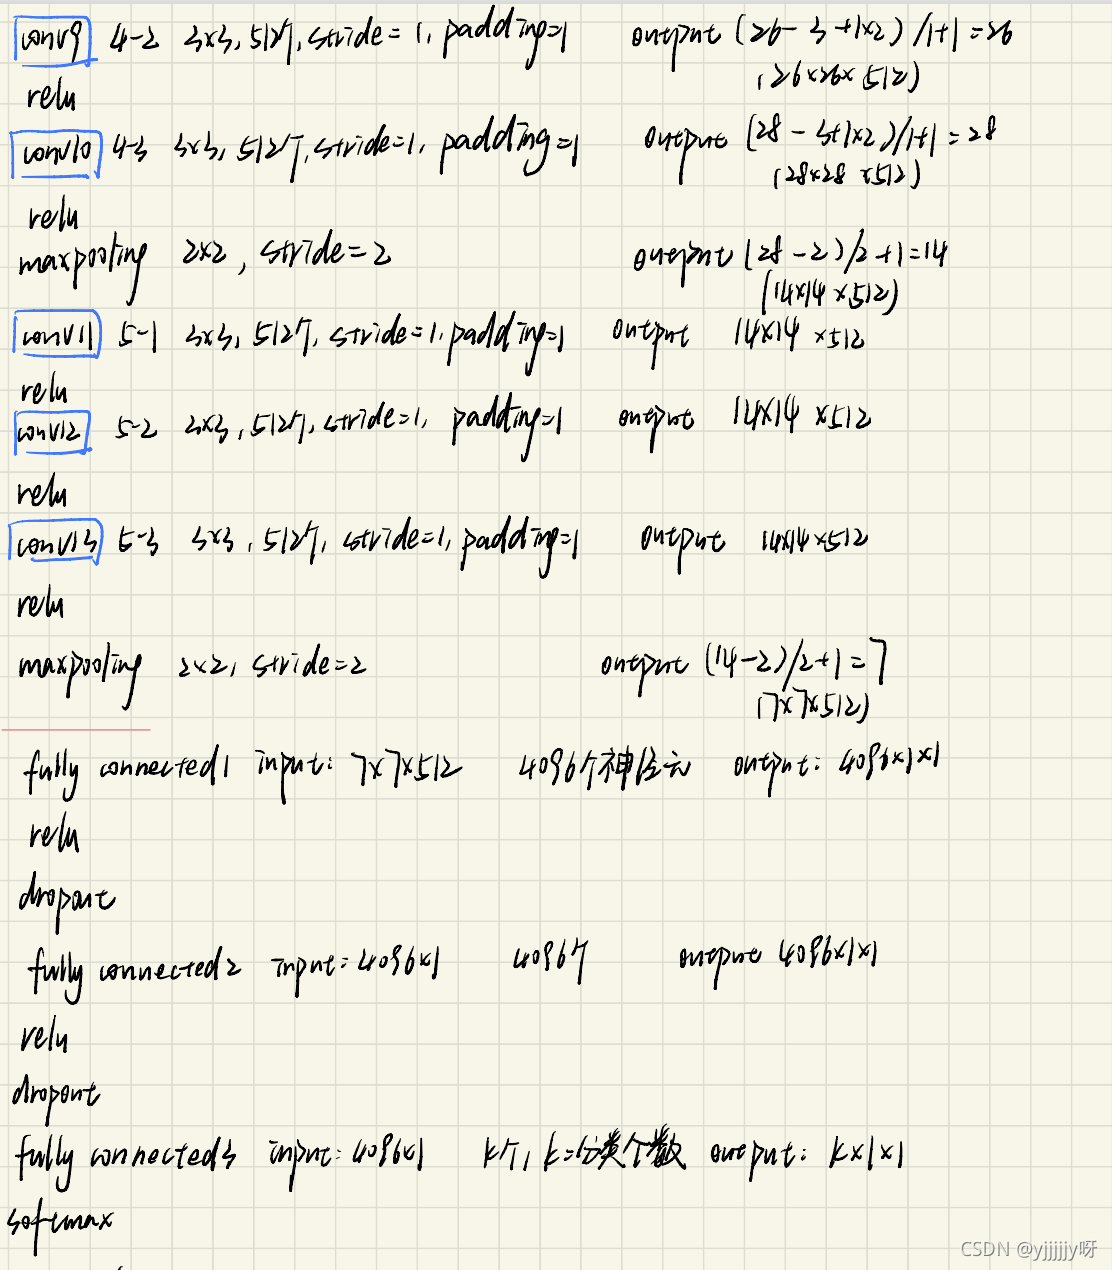 conv9 4-2 3x3, 512个, stride=1, padding=1 output (26-3+1x2)/1+1=26
(26x26x512)
relu
conv10 4-3 3x3, 512个, stride=1, padding=1 output (28-3+1x2)/1+1=28
(28x28x512)
relu
maxpooling 2x2, stride=2 output (28-2)/2+1=14
(14x14x512)
conv11 5-1 3x3, 512个, stride=1, padding=1 output 14x14x512
relu
conv12 5-2 3x3, 512个, stride=1, padding=1 output 14x14x512
relu
conv13 5-3 3x3, 512个, stride=1, padding=1 output 14x14x512
relu
maxpooling 2x2, stride=2 output (14-2)/2+1=7
(7x7x512)
fully connected1 input: 7x7x512 4096个神经元 output: 4096x1x1
relu
dropout
fully connected2 input: 4096x1 4096个 output 4096x1x1
relu
dropout
fully connected3 input: 4096x1 k个, k=分类个数 output: kx1x1
softmax
CSDN @yjjjjjy呀